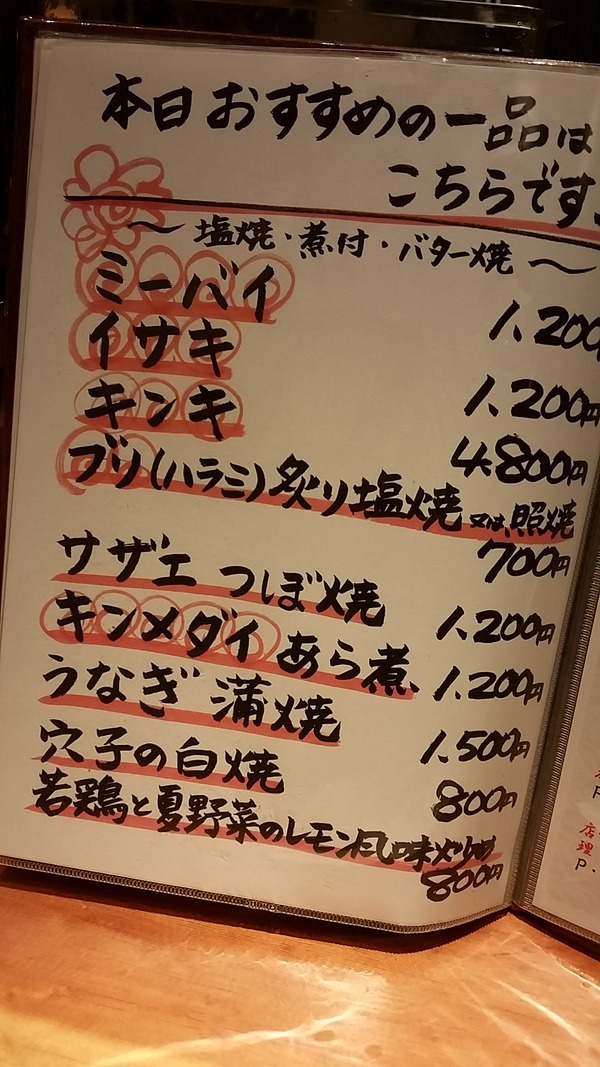 本日おすすめの一品は
こちらです。
～ 塩焼・煮付・バター焼 ～
ミーバイ
1,200
イサキ
1,200円
キンキ
4,800円
ブリ(ハラミ)炙り塩焼 又は、照焼
700円
サザエ つぼ焼
1,200円
キンメダイ あら煮
1,200円
うなぎ 蒲焼
1,500円
穴子の白焼
800円
若鶏と夏野菜のレモン風味炒め
800円
店
理
P.